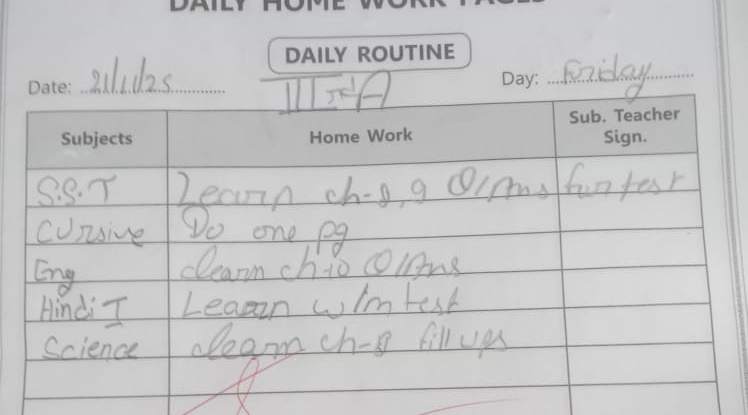 DAILY HOME WORK PAGES
DAILY ROUTINE
Date: 21/11/25 Day: Friday
IIIrd A
Subjects Home Work Sub. Teacher Sign.
S.S.T Learn ch-8,9 Q/Ans for test
Cursive Do one pg
Eng Learn ch-10 Q/Ans
Hindi I Learn w/m test
Science Learn ch-8 fill ups